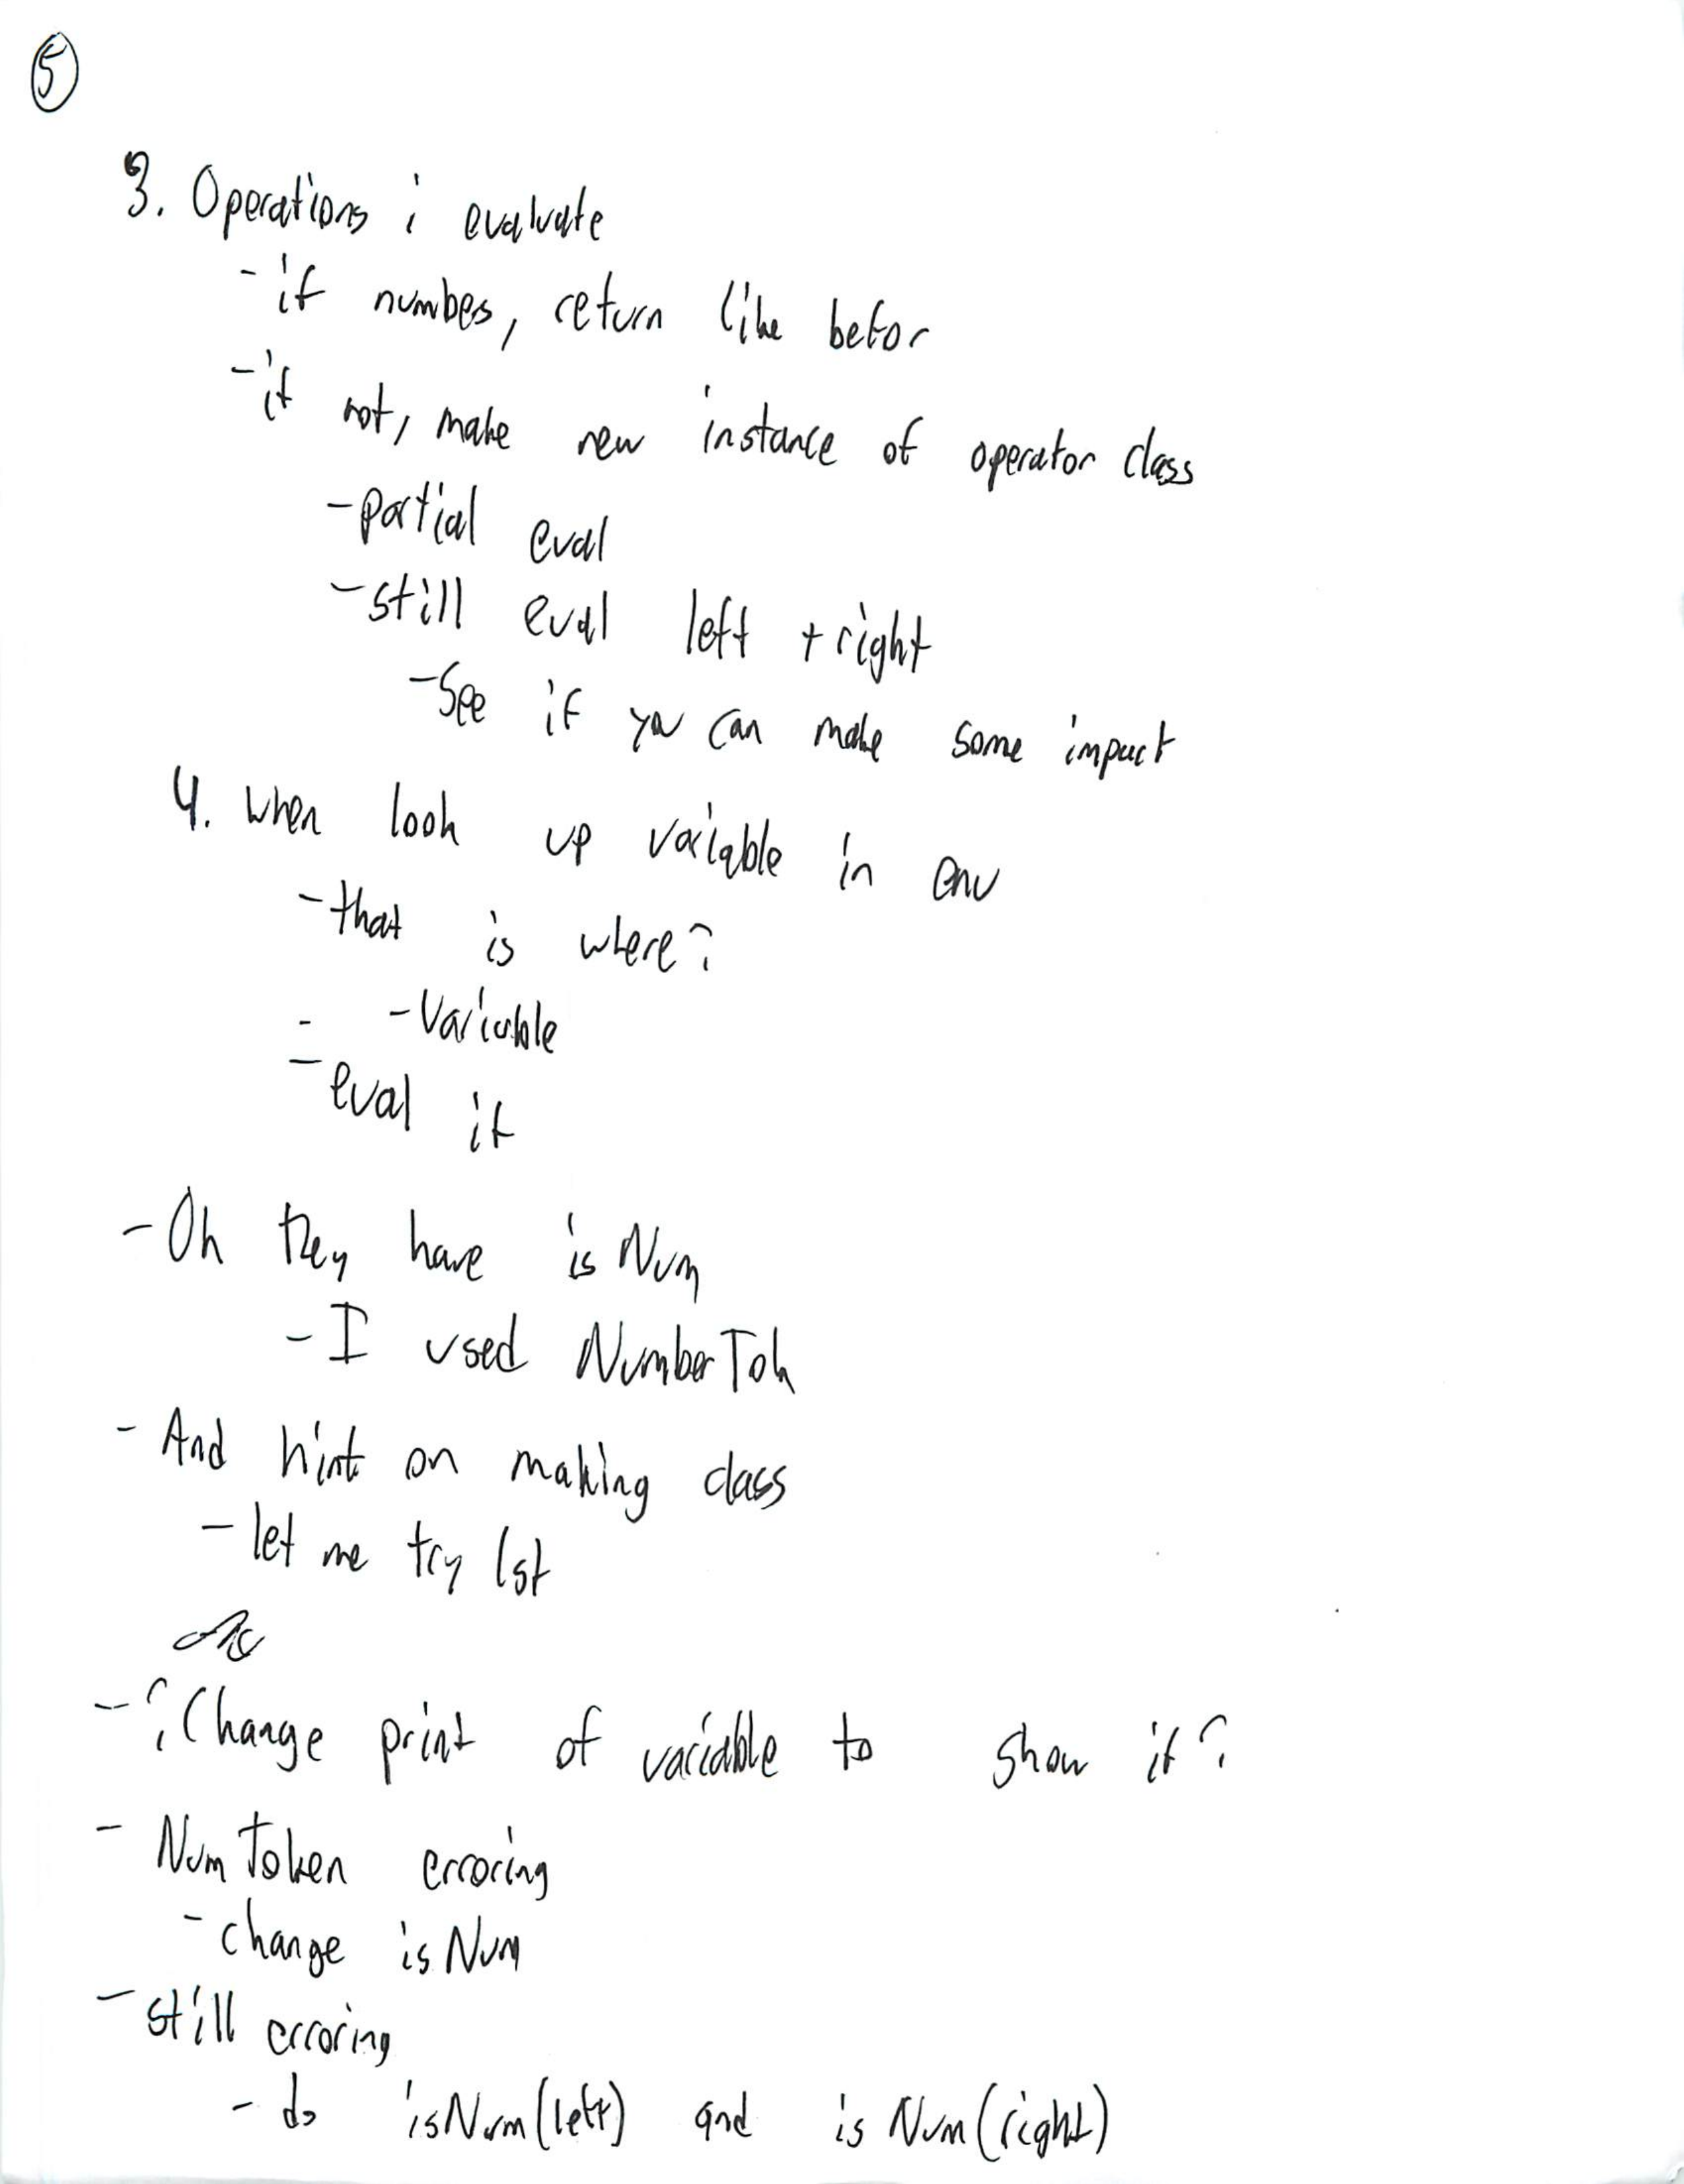 5
3. Operations ; evaluate
- if numbes, return like befor
- if not, make new instance of operator class
- Partial eval
- still eval left + right
- See if you can make some impact
4. When look up variable in env
- that is where?
- Variable
- eval it
- Oh they have isNum
- I used NumberTok
- And hint on making class
- let me try 1st
- ¿Change print of variable to show it?
- Num Token erroring
- change isNum
- still erroring
- do isNum(left) and isNum(right)